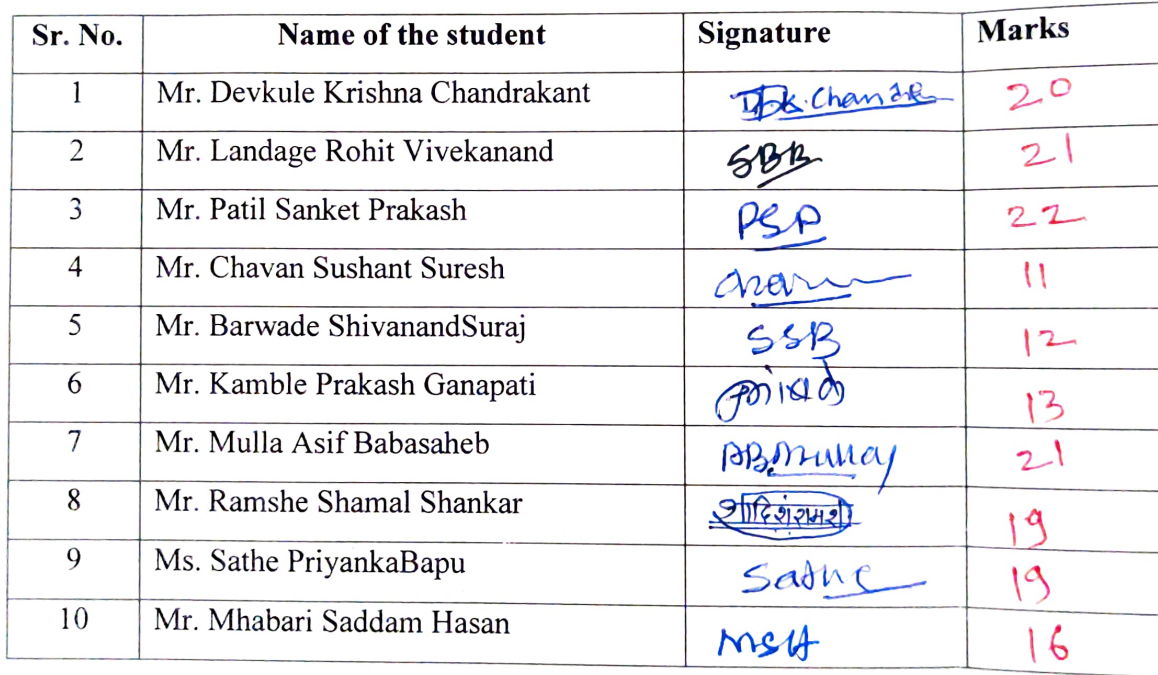 Sr. No. Name of the student Signature Marks
1 Mr. Devkule Krishna Chandrakant 20
2 Mr. Landage Rohit Vivekanand SBB 21
3 Mr. Patil Sanket Prakash PSP 22
4 Mr. Chavan Sushant Suresh 11
5 Mr. Barwade ShivanandSuraj SSB 12
6 Mr. Kamble Prakash Ganapati 13
7 Mr. Mulla Asif Babasaheb 21
8 Mr. Ramshe Shamal Shankar 19
9 Ms. Sathe PriyankaBapu Sathe 19
10 Mr. Mhabari Saddam Hasan MSH 16